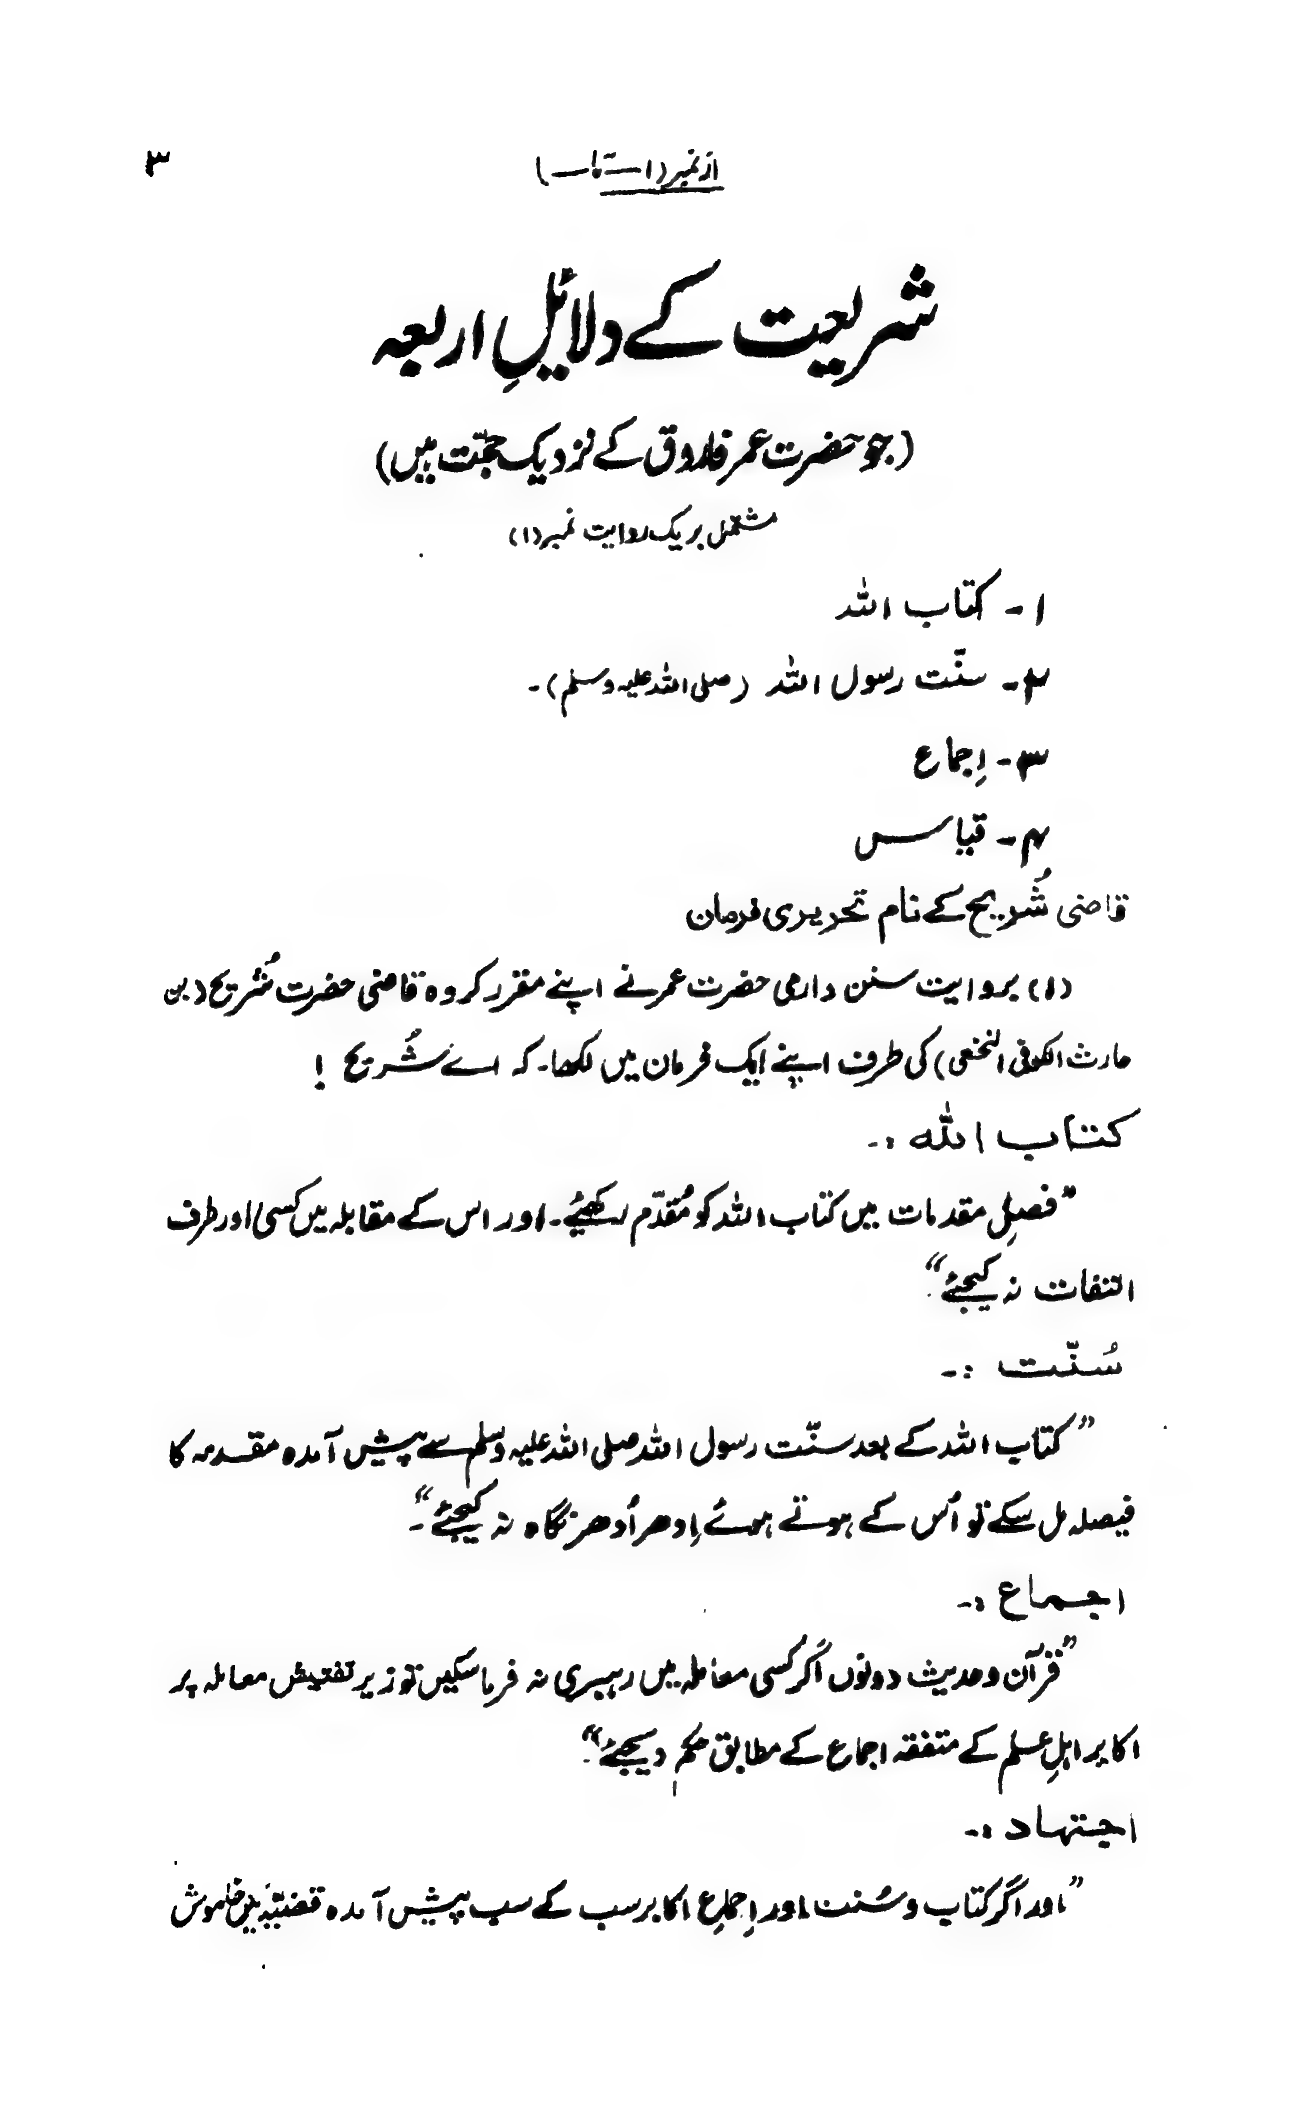 از نمبر (۱ — تا — )
۳
شریعت کے دلائلِ اربعہ
(جو حضرت عمر فاروق کے نزدیک حجّت ہیں)
مشتمل بریک روایت نمبر (۱)
۱- کتاب اللہ
۲- سنّت رسول اللہ (صلی اللہ علیہ وسلم)-
۳- اِجماع
۴- قیاس
قاضی شُریح کے نام تحریری فرمان
(۱) بروایت سنن دارمی حضرت عمر نے اپنے مقرر کروہ قاضی حضرت شُریح (بن
حارث الکوفی النخعی) کی طرف اپنے ایک فرمان میں لکھا۔ کہ اے شُریح !
کتاب اللہ :-
”فصلِ مقدمات میں کتاب اللہ کو مُقدّم رکھیئے۔ اور اس کے مقابلہ میں کسی اور طرف
التفات نہ کیجئے“
سُنّت :-
”کتاب اللہ کے بعد سنّت رسول اللہ صلی اللہ علیہ وسلم سے پیش آمدہ مقدمہ کا
فیصلہ مل سکے تو اُس کے ہوتے ہوئے اِدھر اُدھر نگاہ نہ کیجئے“۔
اجماع :-
”قرآن و حدیث دونوں اگر کسی معاملہ میں رہبری نہ فرما سکیں تو زیر تفتیش معاملہ پر
اکابر اہلِ علم کے متفقہ اجماع کے مطابق حکم دیجئے“
اجتہاد :-
”اور اگر کتاب و سُنت اور اِجماعِ اکابر سب کے سب پیش آمدہ قضیّہ میں خاموش